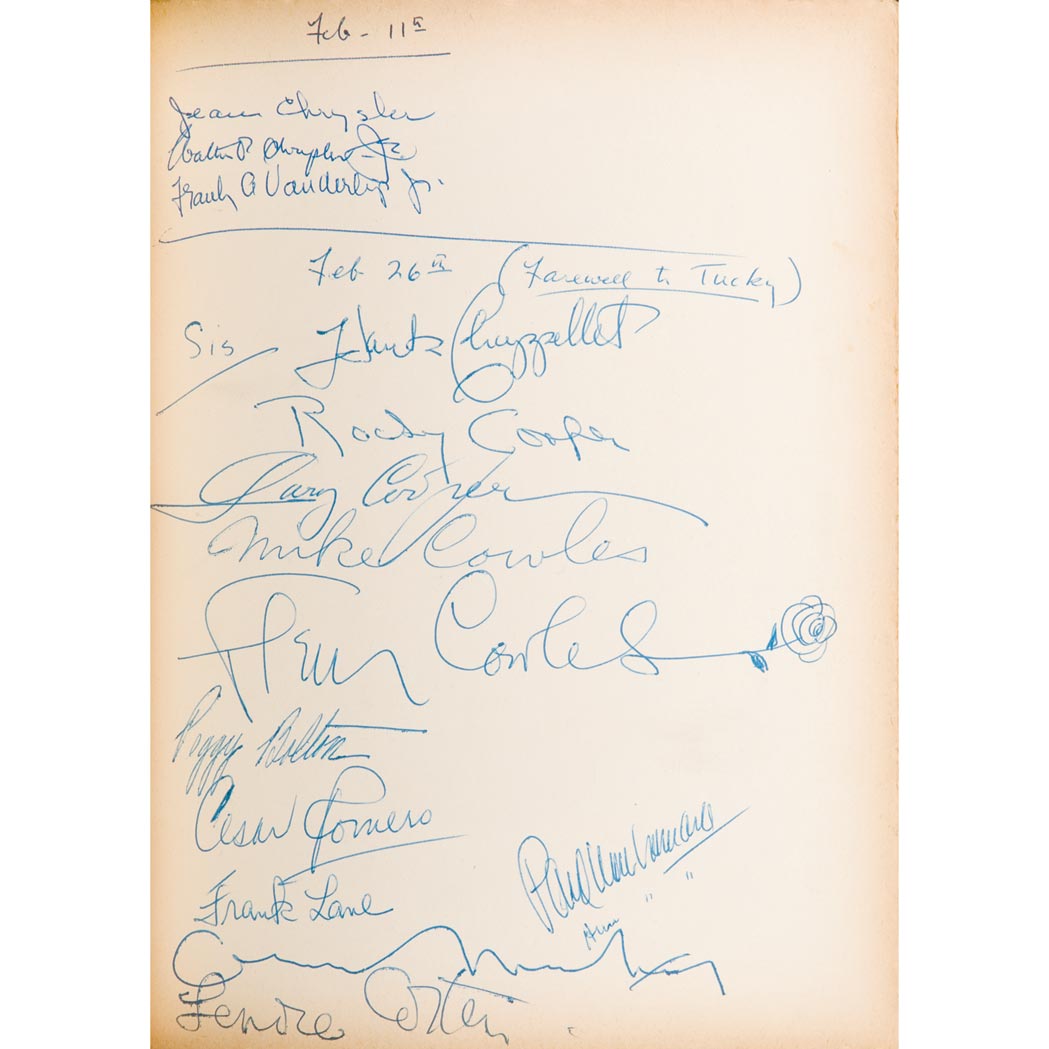 Feb - 11th
Jean Chrysler
Walter P. Chrysler Jr.
Frank A Vanderlip Jr.
Feb 26th (Farewell to Tucky)
Sis Hank Chappellet
Rocky Cooper
Gary Cooper
Mike Cowles
Fleur Cowles
Peggy Bolton
Cesar Romero
Frank Lane
" "
Lenore